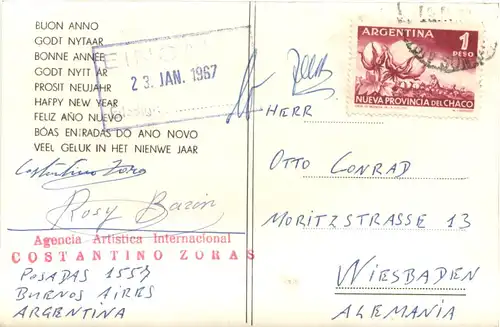 BUON ANNO
GODT NYTAAR
BONNE ANNÉE
GODT NYTT ÅR
PROSIT NEUJAHR
HAPPY NEW YEAR
FELIZ AÑO NUEVO
BÓAS ENTRADAS DO ANO NOVO
VEEL GELUK IN HET NIEUWE JAAR
Costantino Zoro
Rosy Bazin
Agencia Artistica Internacional
COSTANTINO ZORAS
POSADAS 1557
BUENOS AIRES
ARGENTINA
23 JAN. 1967
ARGENTINA
1
PESO
NUEVA PROVINCIA DEL CHACO
HERR
OTTO CONRAD
MORITZSTRASSE 13
WIESBADEN
ALEMANIA